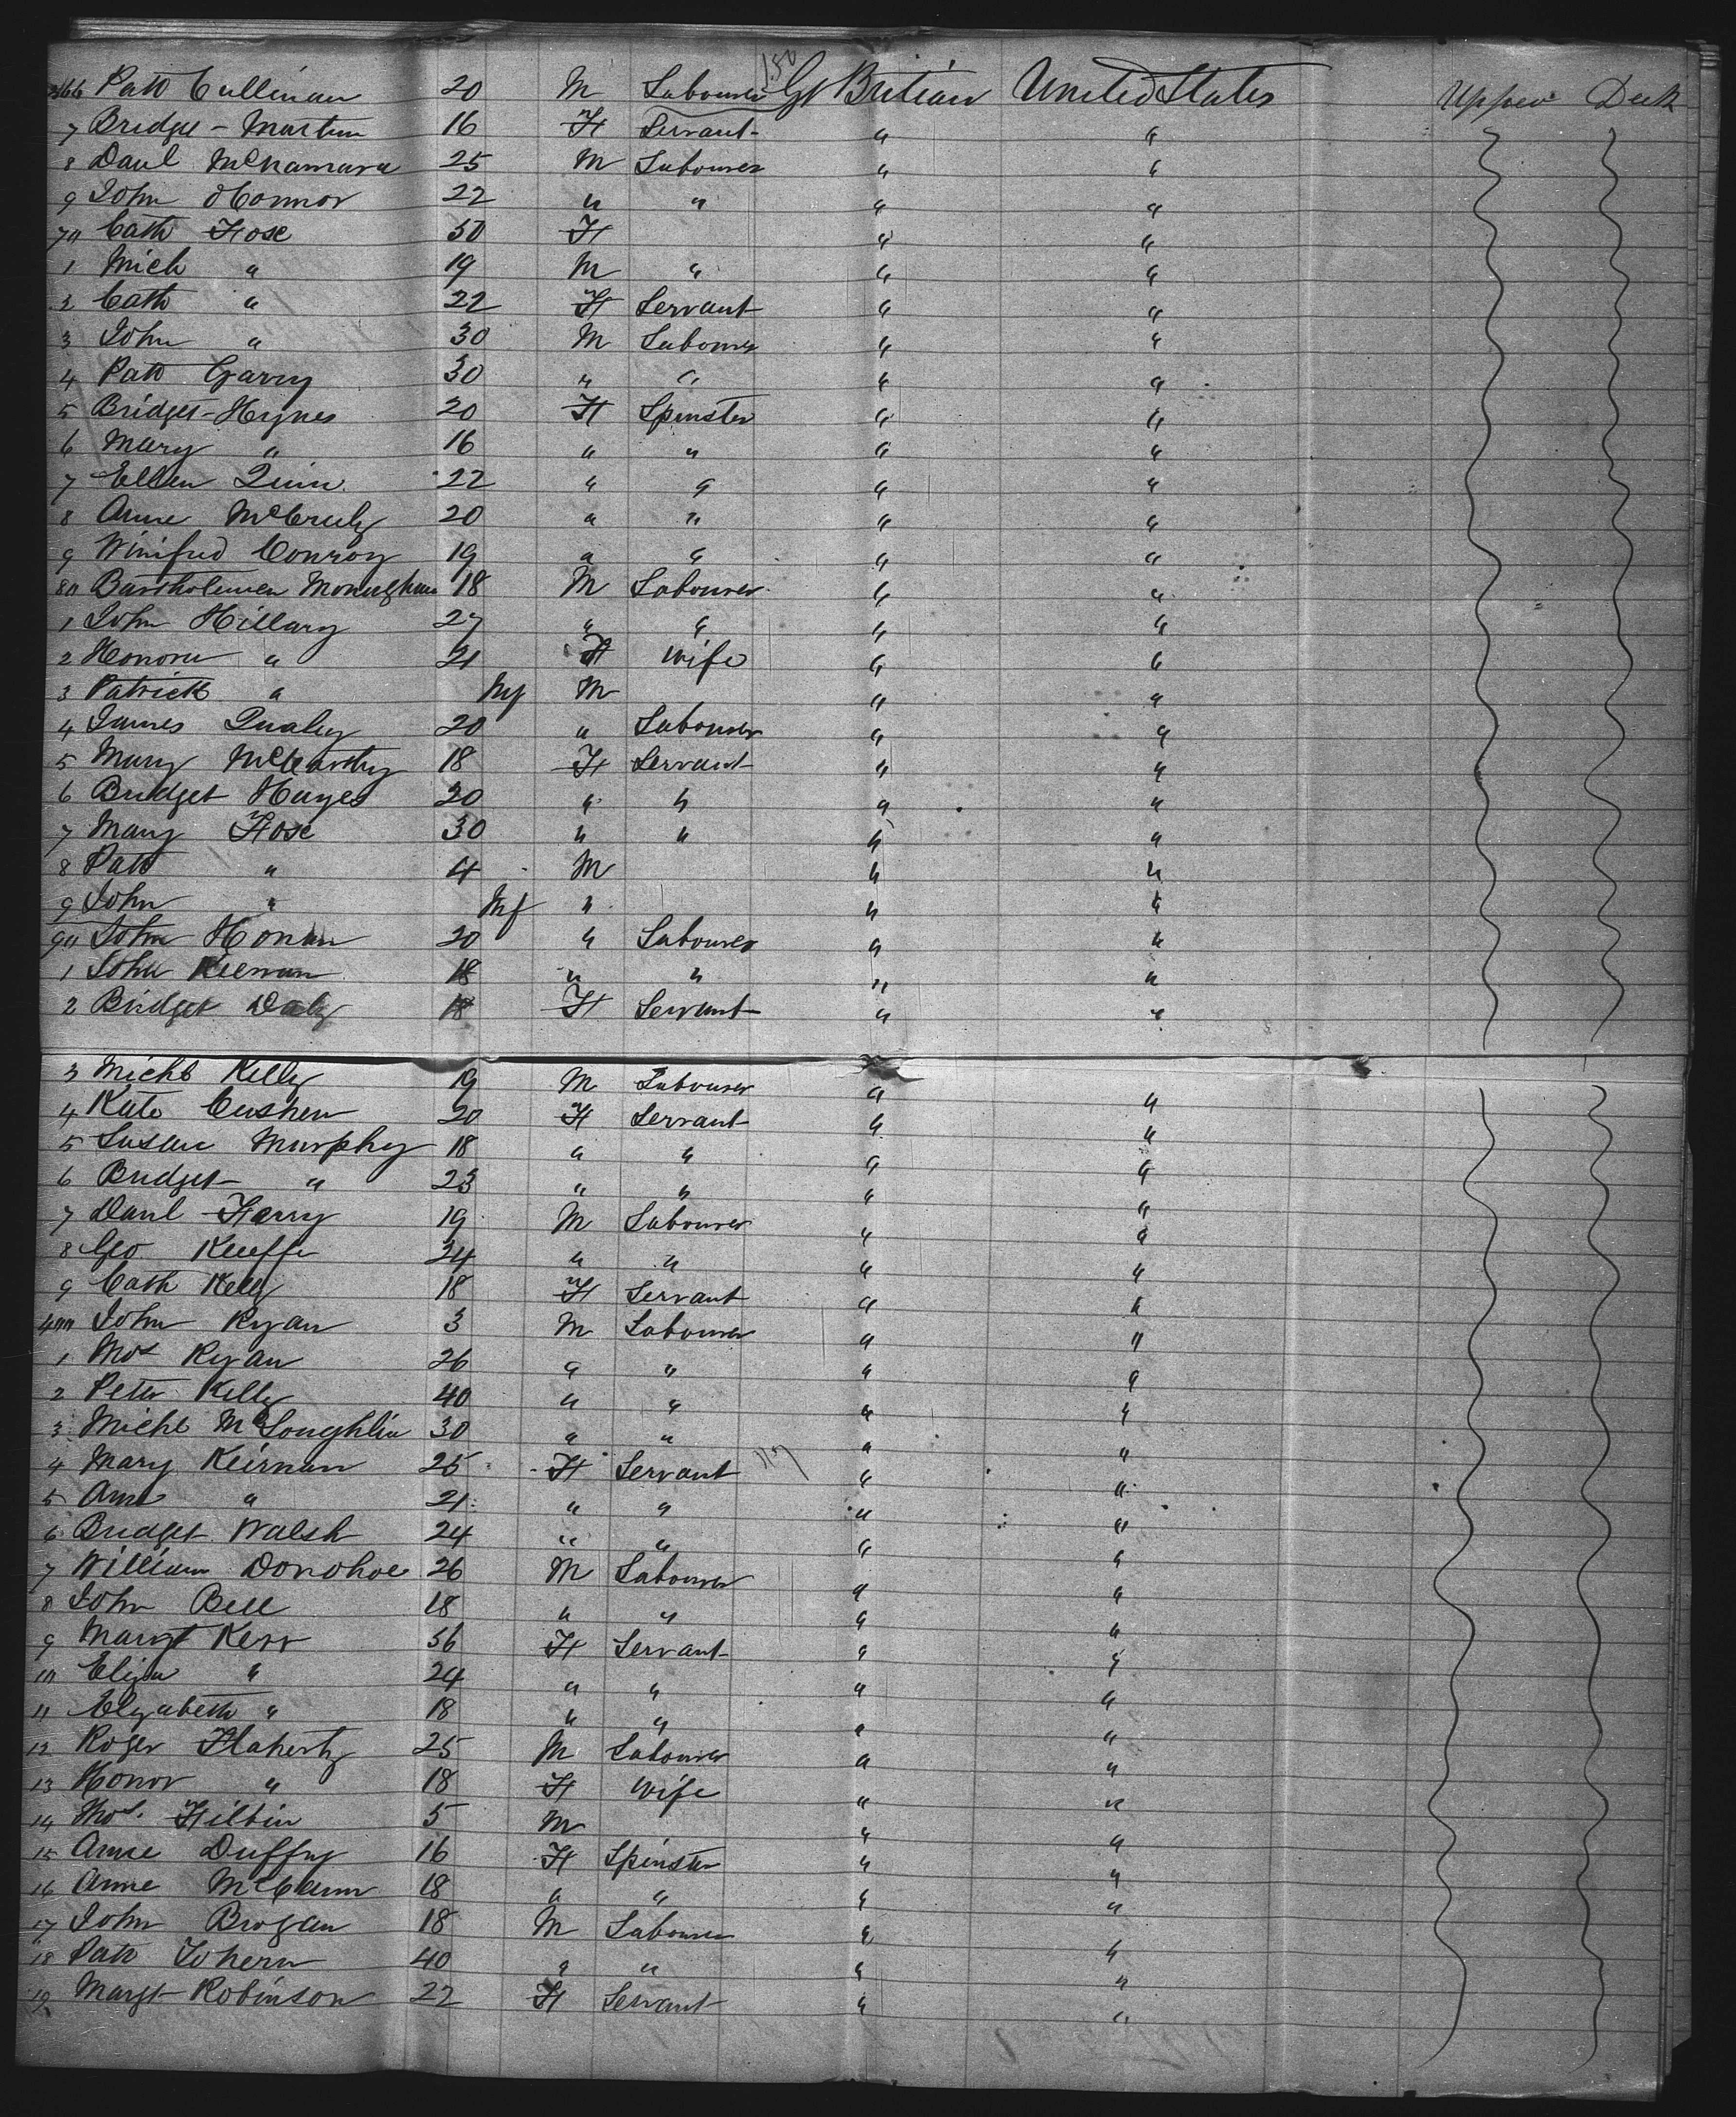 150
366 Patk Cullinan 20 M Labourer Gt Britian United States Upper Deck
7 Bridget Martin 16 F Servant " "
8 Danl McNamara 25 M Labourer " "
9 John OConnor 22 " " " "
70 Cath Fose 50 F " "
1 Mich " 19 M " " "
2 Cath " 22 F Servant " "
3 John " 30 M Labourer " "
4 Patk Garry 30 " " " "
5 Bridget Hynes 20 F Spinster " "
6 Mary " 16 " " " "
7 Ellen Quin 22 " " " "
8 Anne 20 " " " "
9 Winifred Conroy 19 " " " "
80 Bartholemew Monaghan 18 M Labourer " "
1 John Hillary 27 " " " "
2 Honora " 21 F Wife " "
3 Patrick " Inf M " "
4 James Qualey 20 " Labourer " "
5 Mary McCarthy 18 F Servant " "
6 Bridget Hayes 20 " " " "
7 Mary Fose 30 " " " "
8 Patk " 4 M " "
9 John " Inf " " "
90 John Honan 20 " Labourer " "
1 John Keenan 18 " " " "
2 Bridget Daly 18 F Servant " "
3 Michl Kelly 19 M Labourer " "
4 Kate Cushen 20 F Servant " "
5 Susan Murphy 18 " " " "
6 Bridget " 23 " " " "
7 Danl Farry 19 M Labourer " "
8 Geo Keeffe 24 " " " "
9 Cath Kelly 18 F Servant " "
400 John Ryan 3 M Labourer " "
1 Thos Ryan 26 " " " "
2 Peter Kelly 40 " " " "
3 Michl McLoughlin 30 " " " "
4 Mary Keirnan 25 F Servant " "
5 Ann " 21 " " " "
6 Bridget Walsh 24 " " " "
7 William Donohoe 26 M Labourer " "
8 John Bell 18 " " " "
9 Margt Kerr 56 F Servant " "
10 Eliza " 24 " " " "
11 Elizabeth " 18 " " " "
12 Roger Flaherty 25 M Labourer " "
13 Honor " 18 F Wife " "
14 Thos. Filbin 5 M " "
15 Anne Duffy 16 F Spinster " "
16 Anne McCann 18 " " " "
17 John Brogan 18 M Labourer " "
18 Patk 40 " " " "
19 Margt Robinson 22 F Servant " "